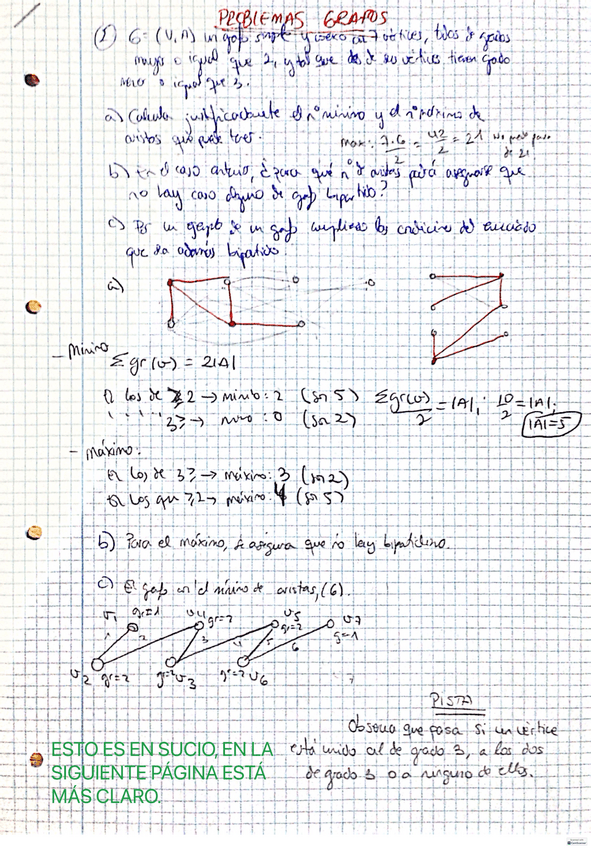 PROBLEMAS GRAFOS
① G=(V,A) un grafo simple y conexo con 7 vértices, todos de grados
mayor o igual que 2, y tal que dos de sus vértices tienen grado
menor o igual que 3.
a) Calcula justificadamente el nº mínimo y el nº máximo de
aristas que puede tener.
max: 7·6/2 = 42/2 = 21 no puede pasar
de 21
b) En el caso anterior, ¿para qué nº de aristas podrá asegurarse que
no hay caso alguno de grafo bipartido?
c) Por un ejemplo de un grafo cumpliendo las condiciones del enunciado
que sea además bipartido.
a)
- Mínimo
Σgr(v) = 2|A|
→ mínimo: 2 (son 5) Σgr(v)/2 = |A|; 10/2 = |A|;
3≥ → : 0 (son 2) |A|=5
- máximo:
En los de 3≥ → máximo: 3 (son 2)
En los que ≥2 → máximo: 4 (son 5)
b) Para el máximo, se asegura que no hay
c) El grafo con el mínimo de aristas, (6).
V1 gr=1 V4 gr=2 V5 gr=2 V7 gr=1
1 2 3 4 5 6
V2 gr=2 gr=2 V3 gr=2 V6
PISTA
Observa que pasa si un vértice
está unido al de grado 3, a los dos
de grado 3 o a ninguno de ellos.
ESTO ES EN SUCIO, EN LA
SIGUIENTE PÁGINA ESTÁ
MÁS CLARO.